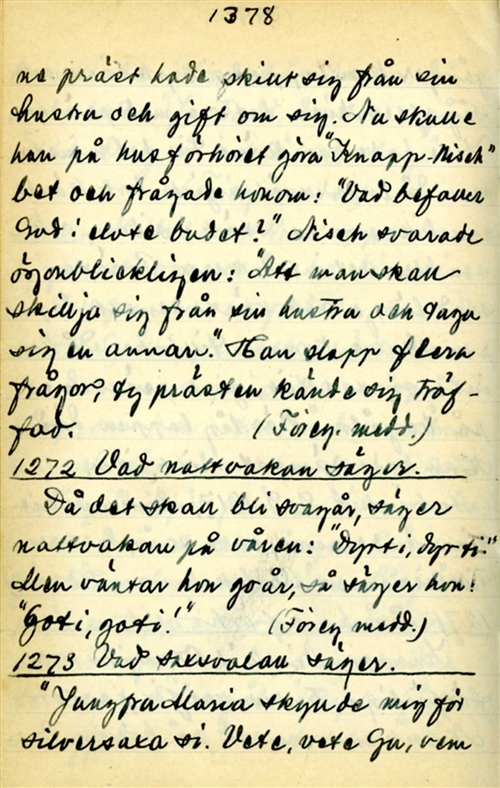 1378
ne präst hade skiljt sig från sin
hustru och gift om sig. Nu skulle
han på husförhöret göra "Knapp-Nisch"
bet och frågade honom: "Vad befaller
Gud i elvte budet?" Nisch svarade
ögonblickligen: "Att man skall
skillja sig från sin hustru och taga
sig en annan." Han slapp flera
frågor, ty prästen kände sig träf-
fad. (Föreg. medd.)
1272 Vad nattvakan säger.
Då det skall bli svagår, säger
nattvakan på våren: "Dyrti, dyrti!"
Men väntar hon goår, så säger hon:
"Goti, goti!" (Föreg medd.)
1273 Vad saxsvalan säger.
"Jungfru Maria skyllde mig för
silversaxa si. Vete, vete Gu, vem